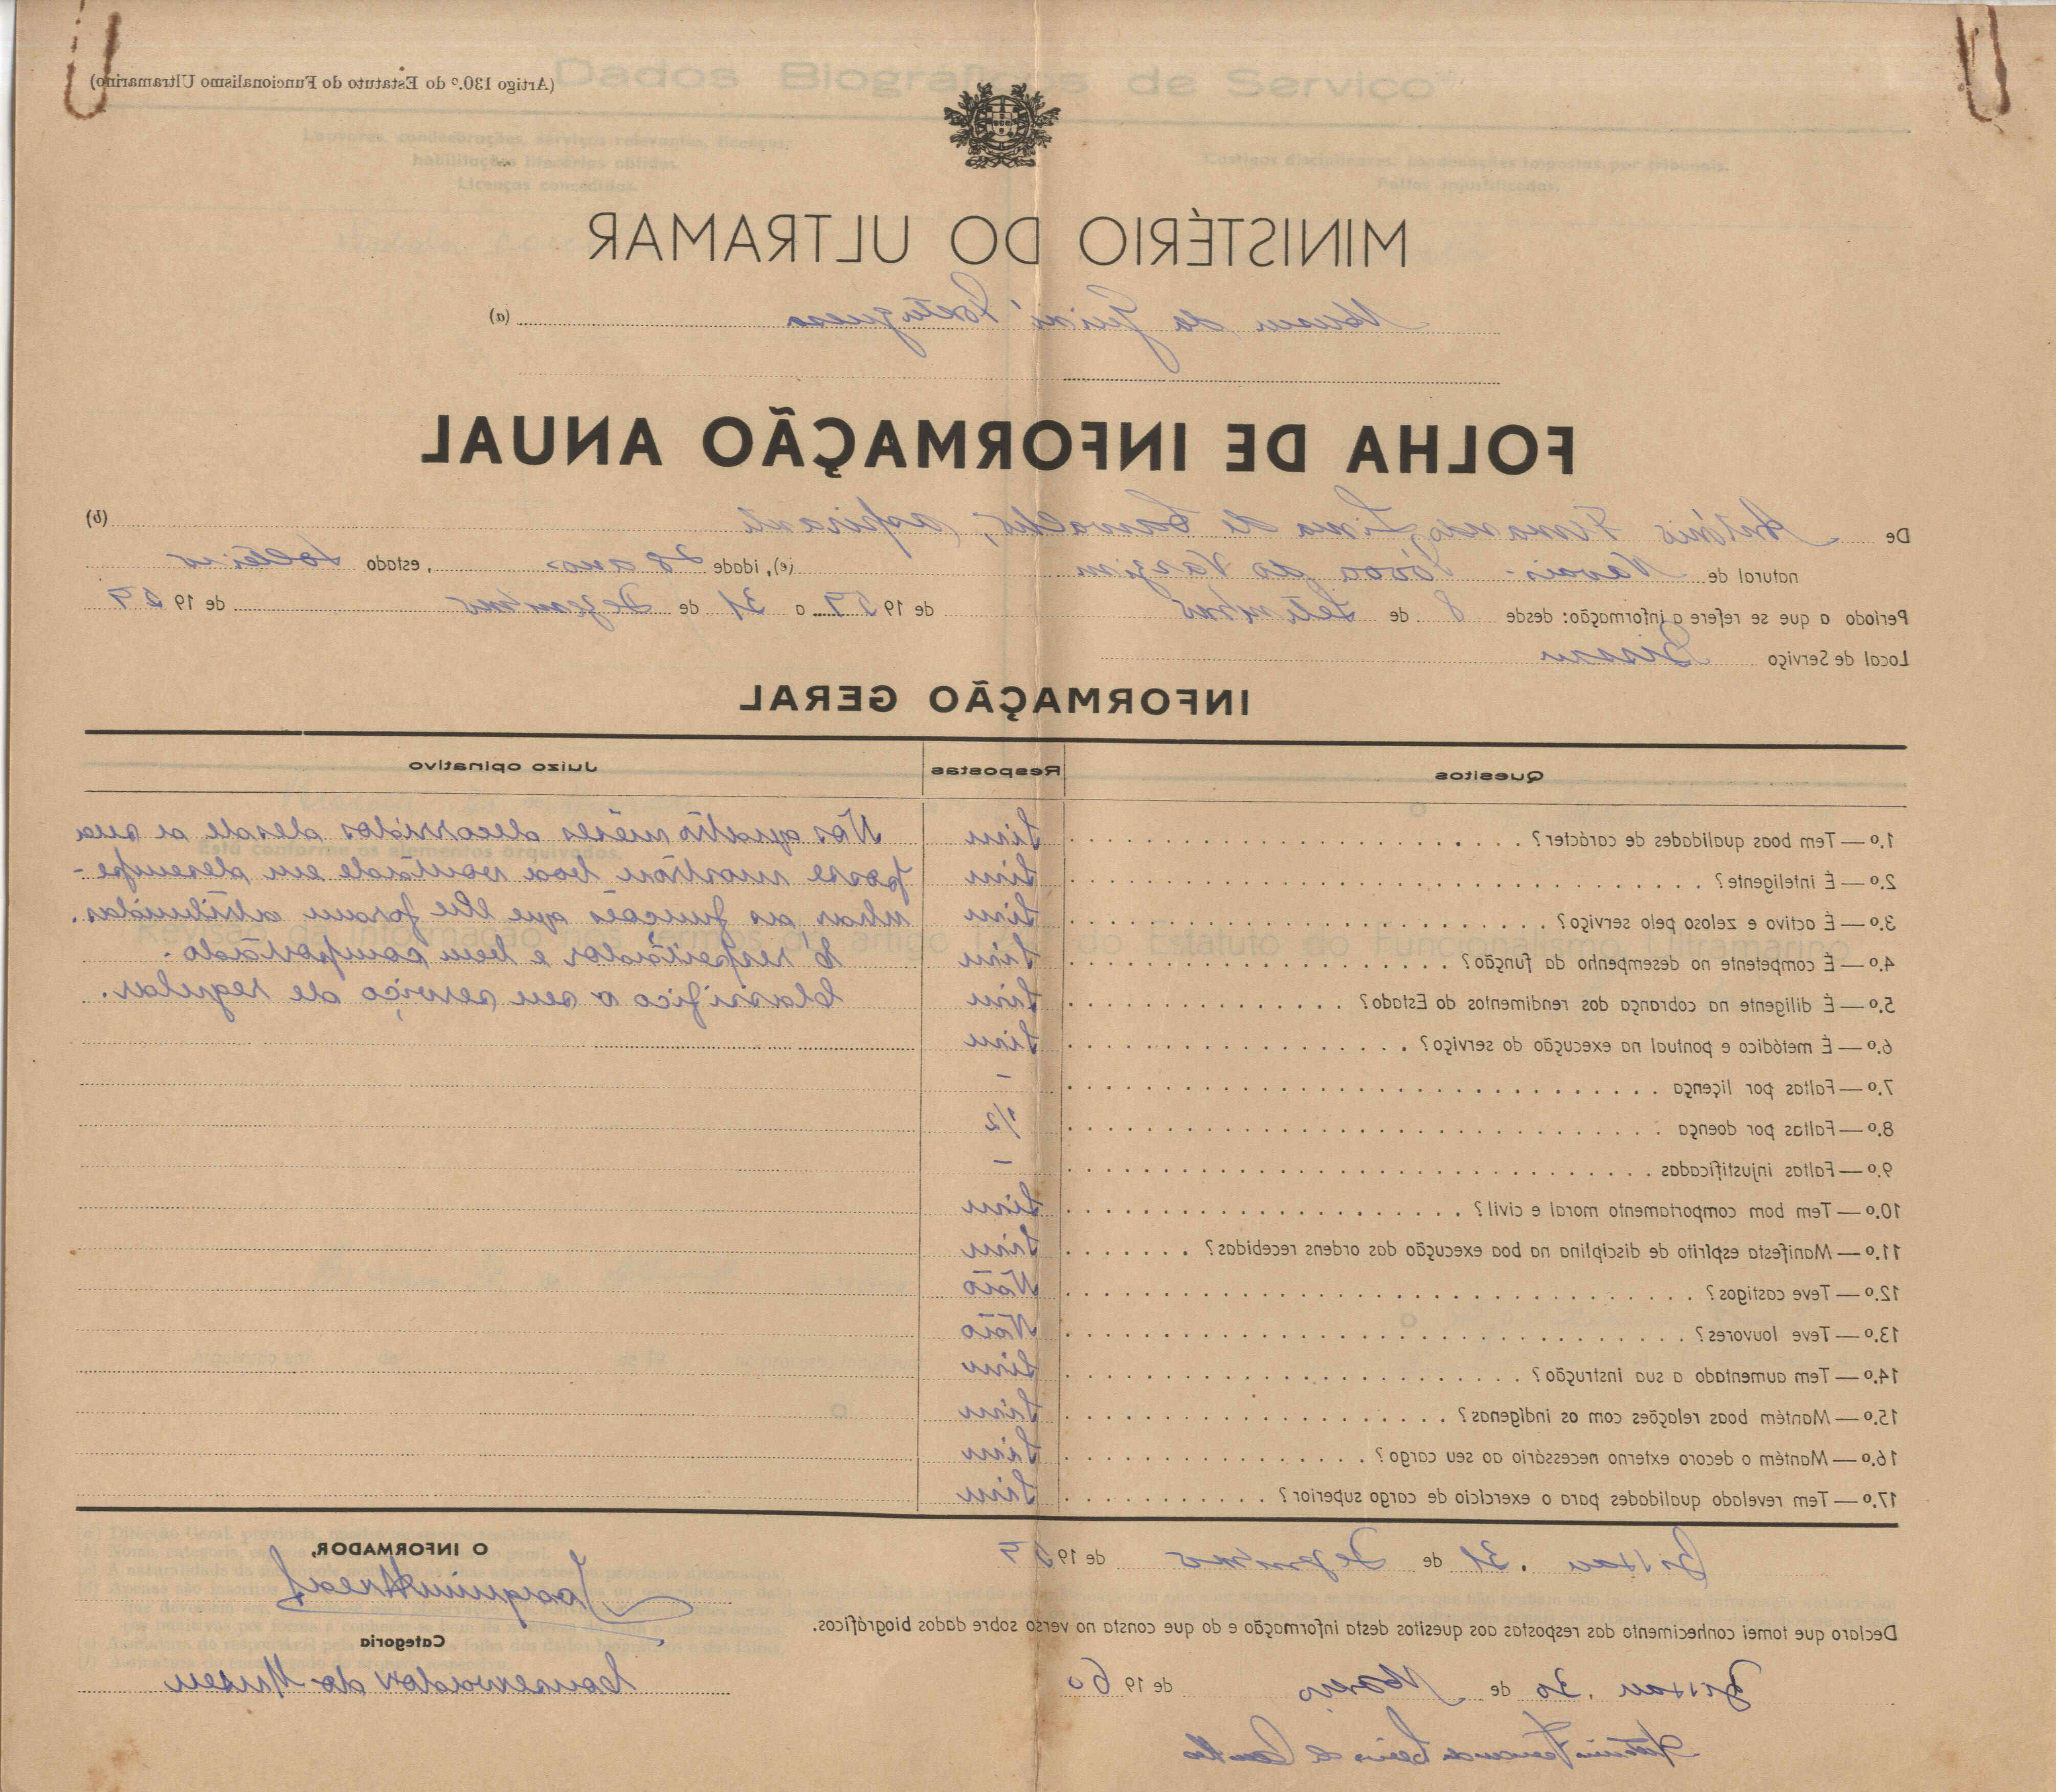 (Artigo 130.º do Estatuto do Funcionalismo Ultramarino)
MINISTÉRIO DO ULTRAMAR
Museu da Guiné Portuguesa (a)
FOLHA DE INFORMAÇÃO ANUAL
De António Fernando Lima de Carvalho, (aspirante (b)
natural de Navais - Póvoa do Varzim (e), idade 28 anos, estado solteiro
Período a que se refere a informação: desde 8 de Setembro de 1959 a 31 de Dezembro de 1959
Local de Serviço Bissau
INFORMAÇÃO GERAL
Quesitos Respostas Juízo opinativo
1.º — Tem boas qualidades de carácter? Sim Nos quatro mêses decorridos desde a sua
2.º — É inteligente? Sim posse mostrou boa vontade em desempe-
3.º — É activo e zeloso pelo serviço? Sim nhar as funções que lhe foram atribuidas.
4.º — É competente no desempenho da função? Sim É respeitador e bem comportado.
5.º — É diligente na cobrança dos rendimentos do Estado? Sim Classifico o seu serviço de regular.
6.º — É metódico e pontual na execução do serviço? Sim
7.º — Faltas por liçença -
8.º — Faltas por doença 1/2
9.º — Faltas injustificadas -
10.º — Tem bom comportamento moral e civil? Sim
11.º — Manifesta espírito de disciplina na boa execução das ordens recebidas? Sim
12.º — Teve castigos? Não
13.º — Teve louvores? Não
14.º — Tem aumentado a sua instrução? Sim
15.º — Mantém boas relações com os indígenas? Sim
16.º — Mantém o decoro externo necessário ao seu cargo? Sim
17.º — Tem revelado qualidades para o exercício de cargo superior? Sim
Bissau, 31 de Dezembro de 1959
O INFORMADOR,
Joaquim Areal
Declaro que tomei conhecimento das respostas aos quesitos desta informação e do que consta no verso sobre dados biográficos.
Categoria
Conservador do Museu
Bissau, 30 de Março de 1960
António Fernando Lima de Carvalho
Dados Biográficos de Serviço
Louvores, condecorações, serviços relevantes, licenças,
habilitações literárias obtidas.
Licenças concedidas.
Castigos disciplinares, condenações impostas por tribunais.
Faltas injustificadas.
Está conforme os elementos arquivados.